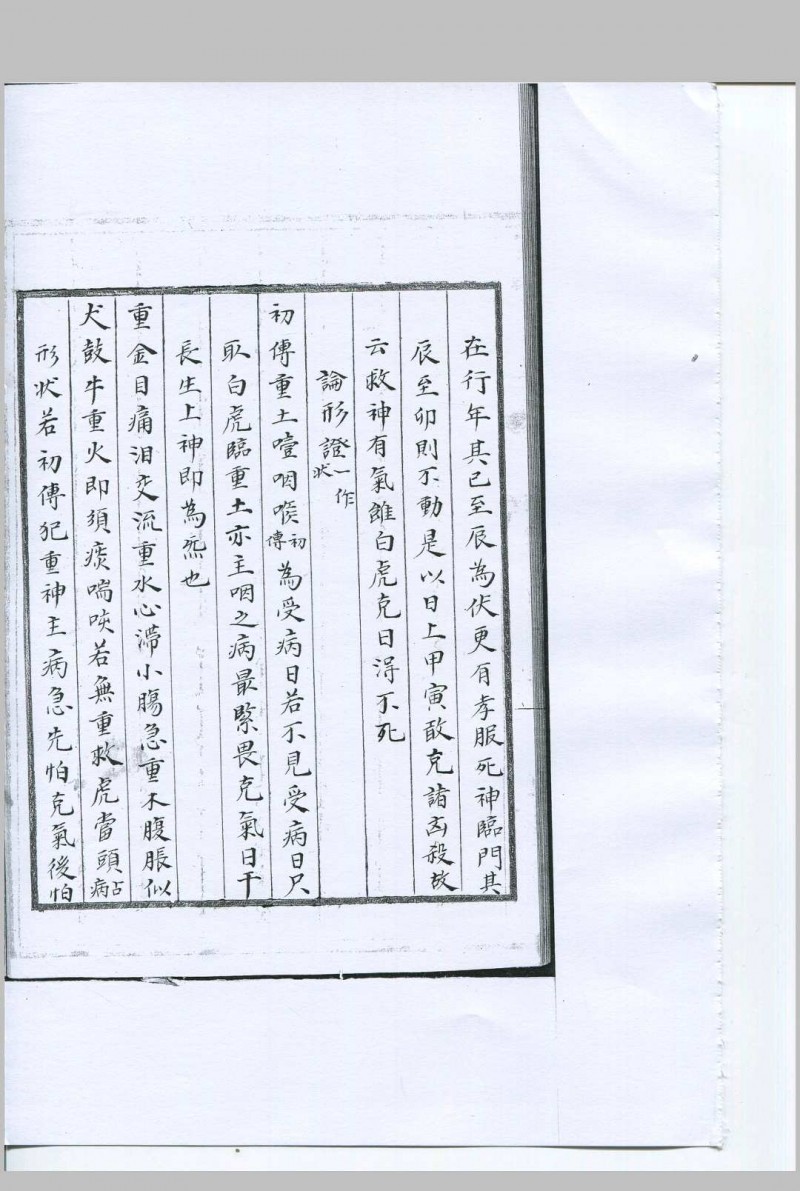 在行年其巳至辰為伏更有孝服死神臨門其
辰至卯則不動是以日上甲寅敢克諸凶殺故
云救神有氣雖白虎克日得不死
論形證一作狀
初傳重土噎咽喉初傳為受病日若不見受病日只
取白虎臨重土亦主咽之病最緊畏克氣日干
長生上神即為炁也
重金目痛淚交流重水心滯小腸急重木腹脹似
犬鼓牛重火即須痰喘咳若無重救虎當頭占病
形状若初傳犯重神主病急先怕克氣後怕